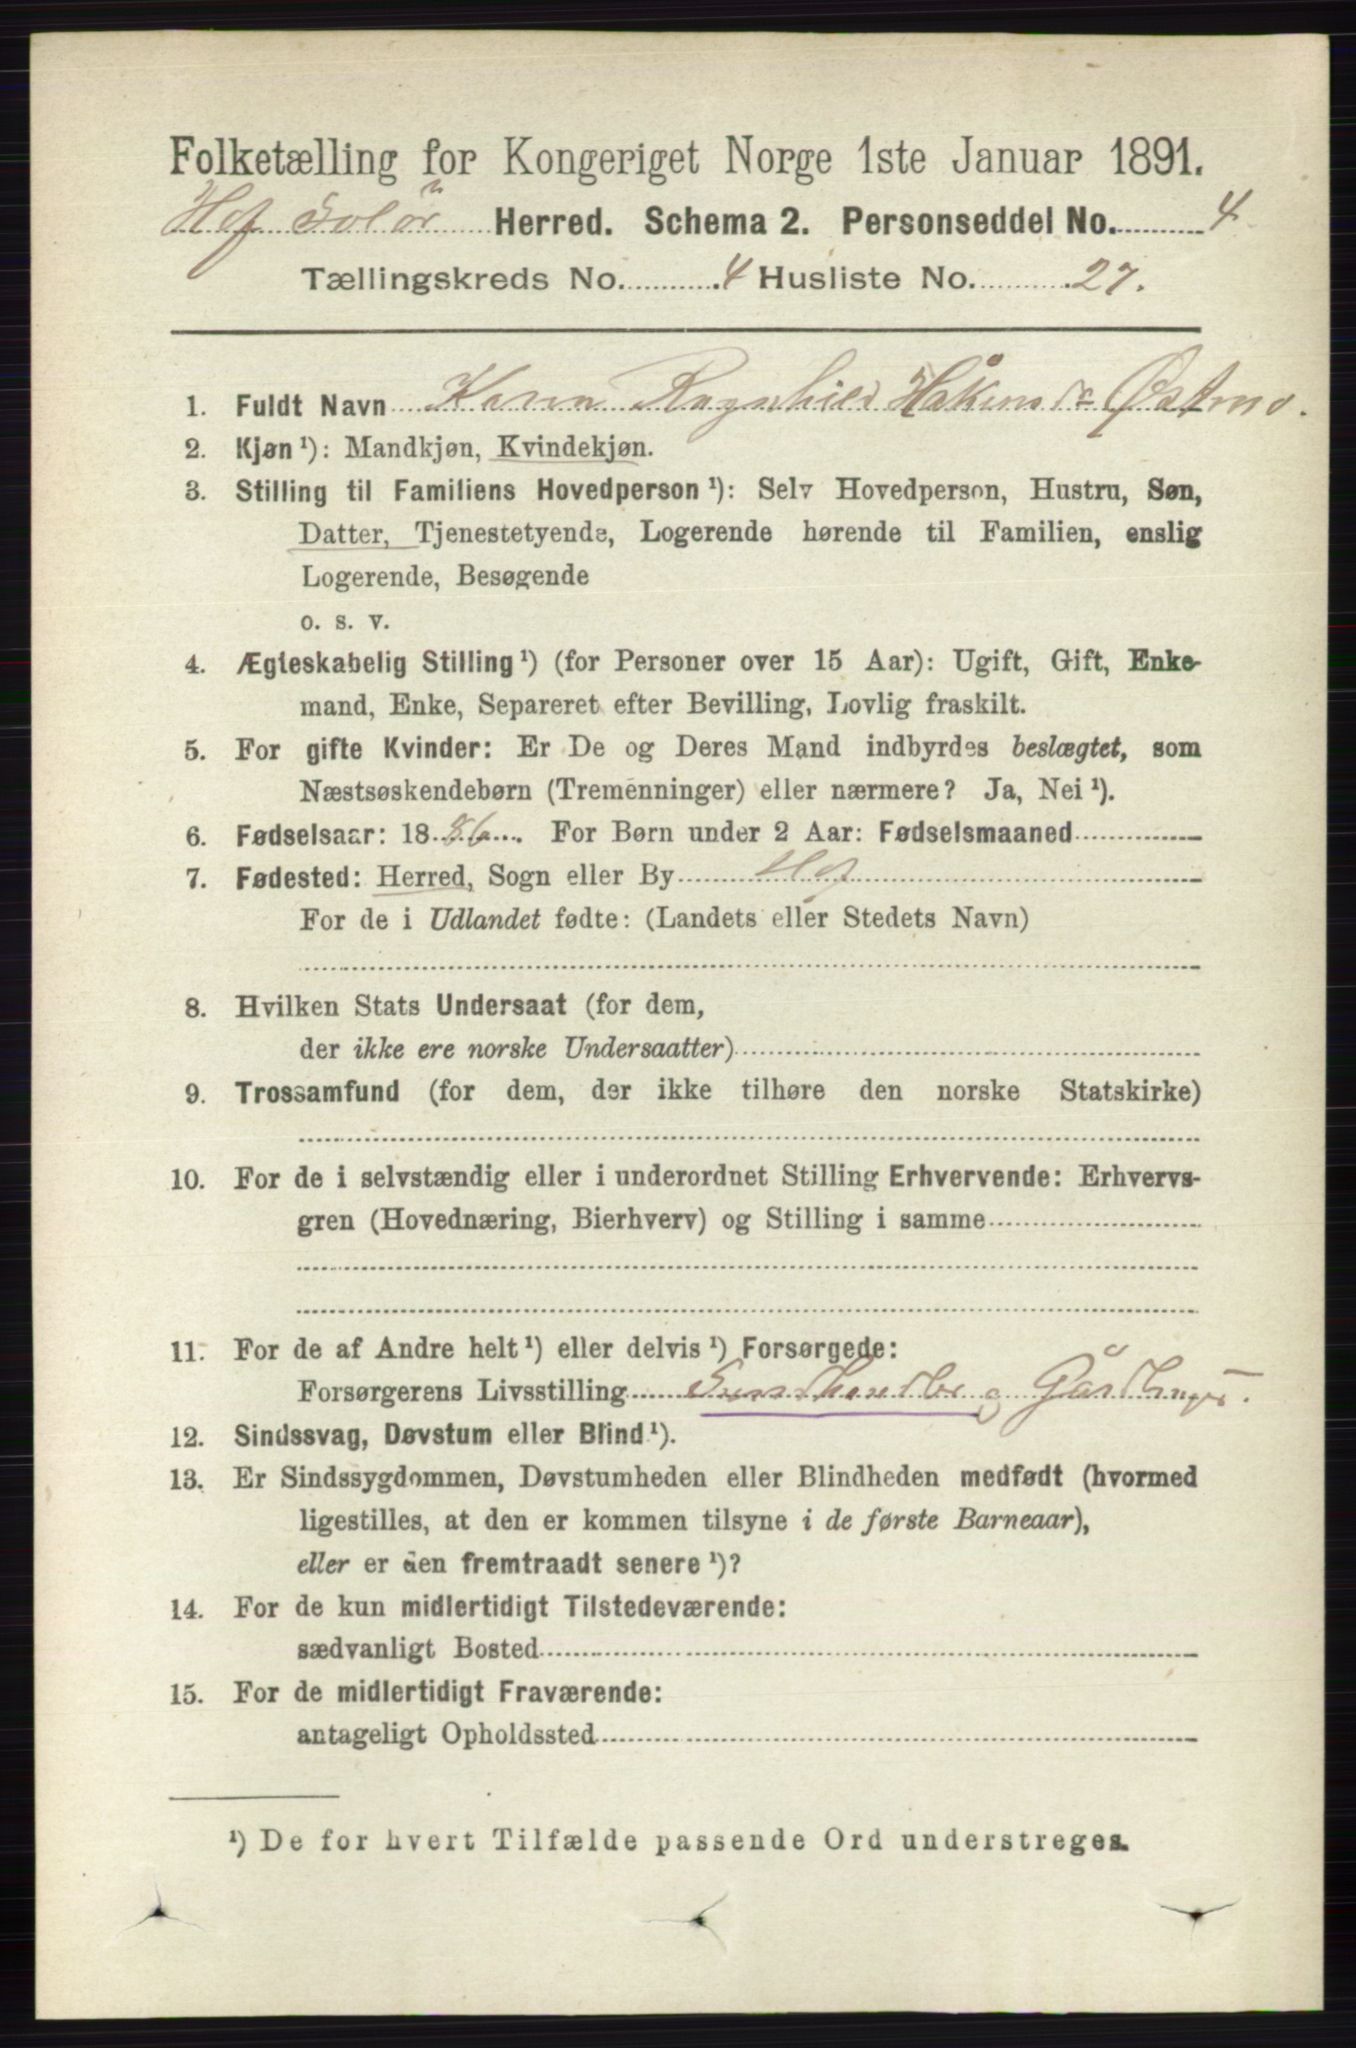 Folketælling for Kongeriget Norge 1ste Januar 1891.
Hof Solör Herred. Schema 2. Personseddel No. 4
Tællingskreds No. 4 Husliste No. 27.
1. Fuldt Navn Karen Ragnhild Håkensdr Østmo.
2. Kjøn¹): Mandkjøn, Kvindekjøn.
3. Stilling til Familiens Hovedperson¹): Selv Hovedperson, Hustru, Søn,
Datter, Tjenestetyende, Logerende hørende til Familien, enslig
Logerende, Besøgende
o. s. v.
4. Ægteskabelig Stilling¹) (for Personer over 15 Aar): Ugift, Gift, Enke-
mand, Enke, Separeret efter Bevilling, Lovlig fraskilt.
5. For gifte Kvinder: Er De og Deres Mand indbyrdes beslægtet, som
Næstsøskendebørn (Tremenninger) eller nærmere? Ja, Nei¹).
6. Fødselsaar: 1886. For Børn under 2 Aar: Fødselsmaaned
7. Fødested: Herred, Sogn eller By Hof
For de i Udlandet fødte: (Landets eller Stedets Navn)
8. Hvilken Stats Undersaat (for dem,
der ikke ere norske Undersaatter)
9. Trossamfund (for dem, der ikke tilhøre den norske Statskirke)
10. For de i selvstændig eller i underordnet Stilling Erhvervende: Erhvervs-
gren (Hovednæring, Bierhverv) og Stilling i samme
11. For de af Andre helt¹) eller delvis¹) Forsørgede:
Forsørgerens Livsstilling
12. Sindssvag, Døvstum eller Blind¹).
13. Er Sindssygdommen, Døvstumheden eller Blindheden medfødt (hvormed
ligestilles, at den er kommen tilsyne i de første Barneaar),
eller er den fremtraadt senere¹)?
14. For de kun midlertidigt Tilstedeværende:
sædvanligt Bosted
15. For de midlertidigt Fraværende:
antageligt Opholdssted
¹) De for hvert Tilfælde passende Ord understreges.